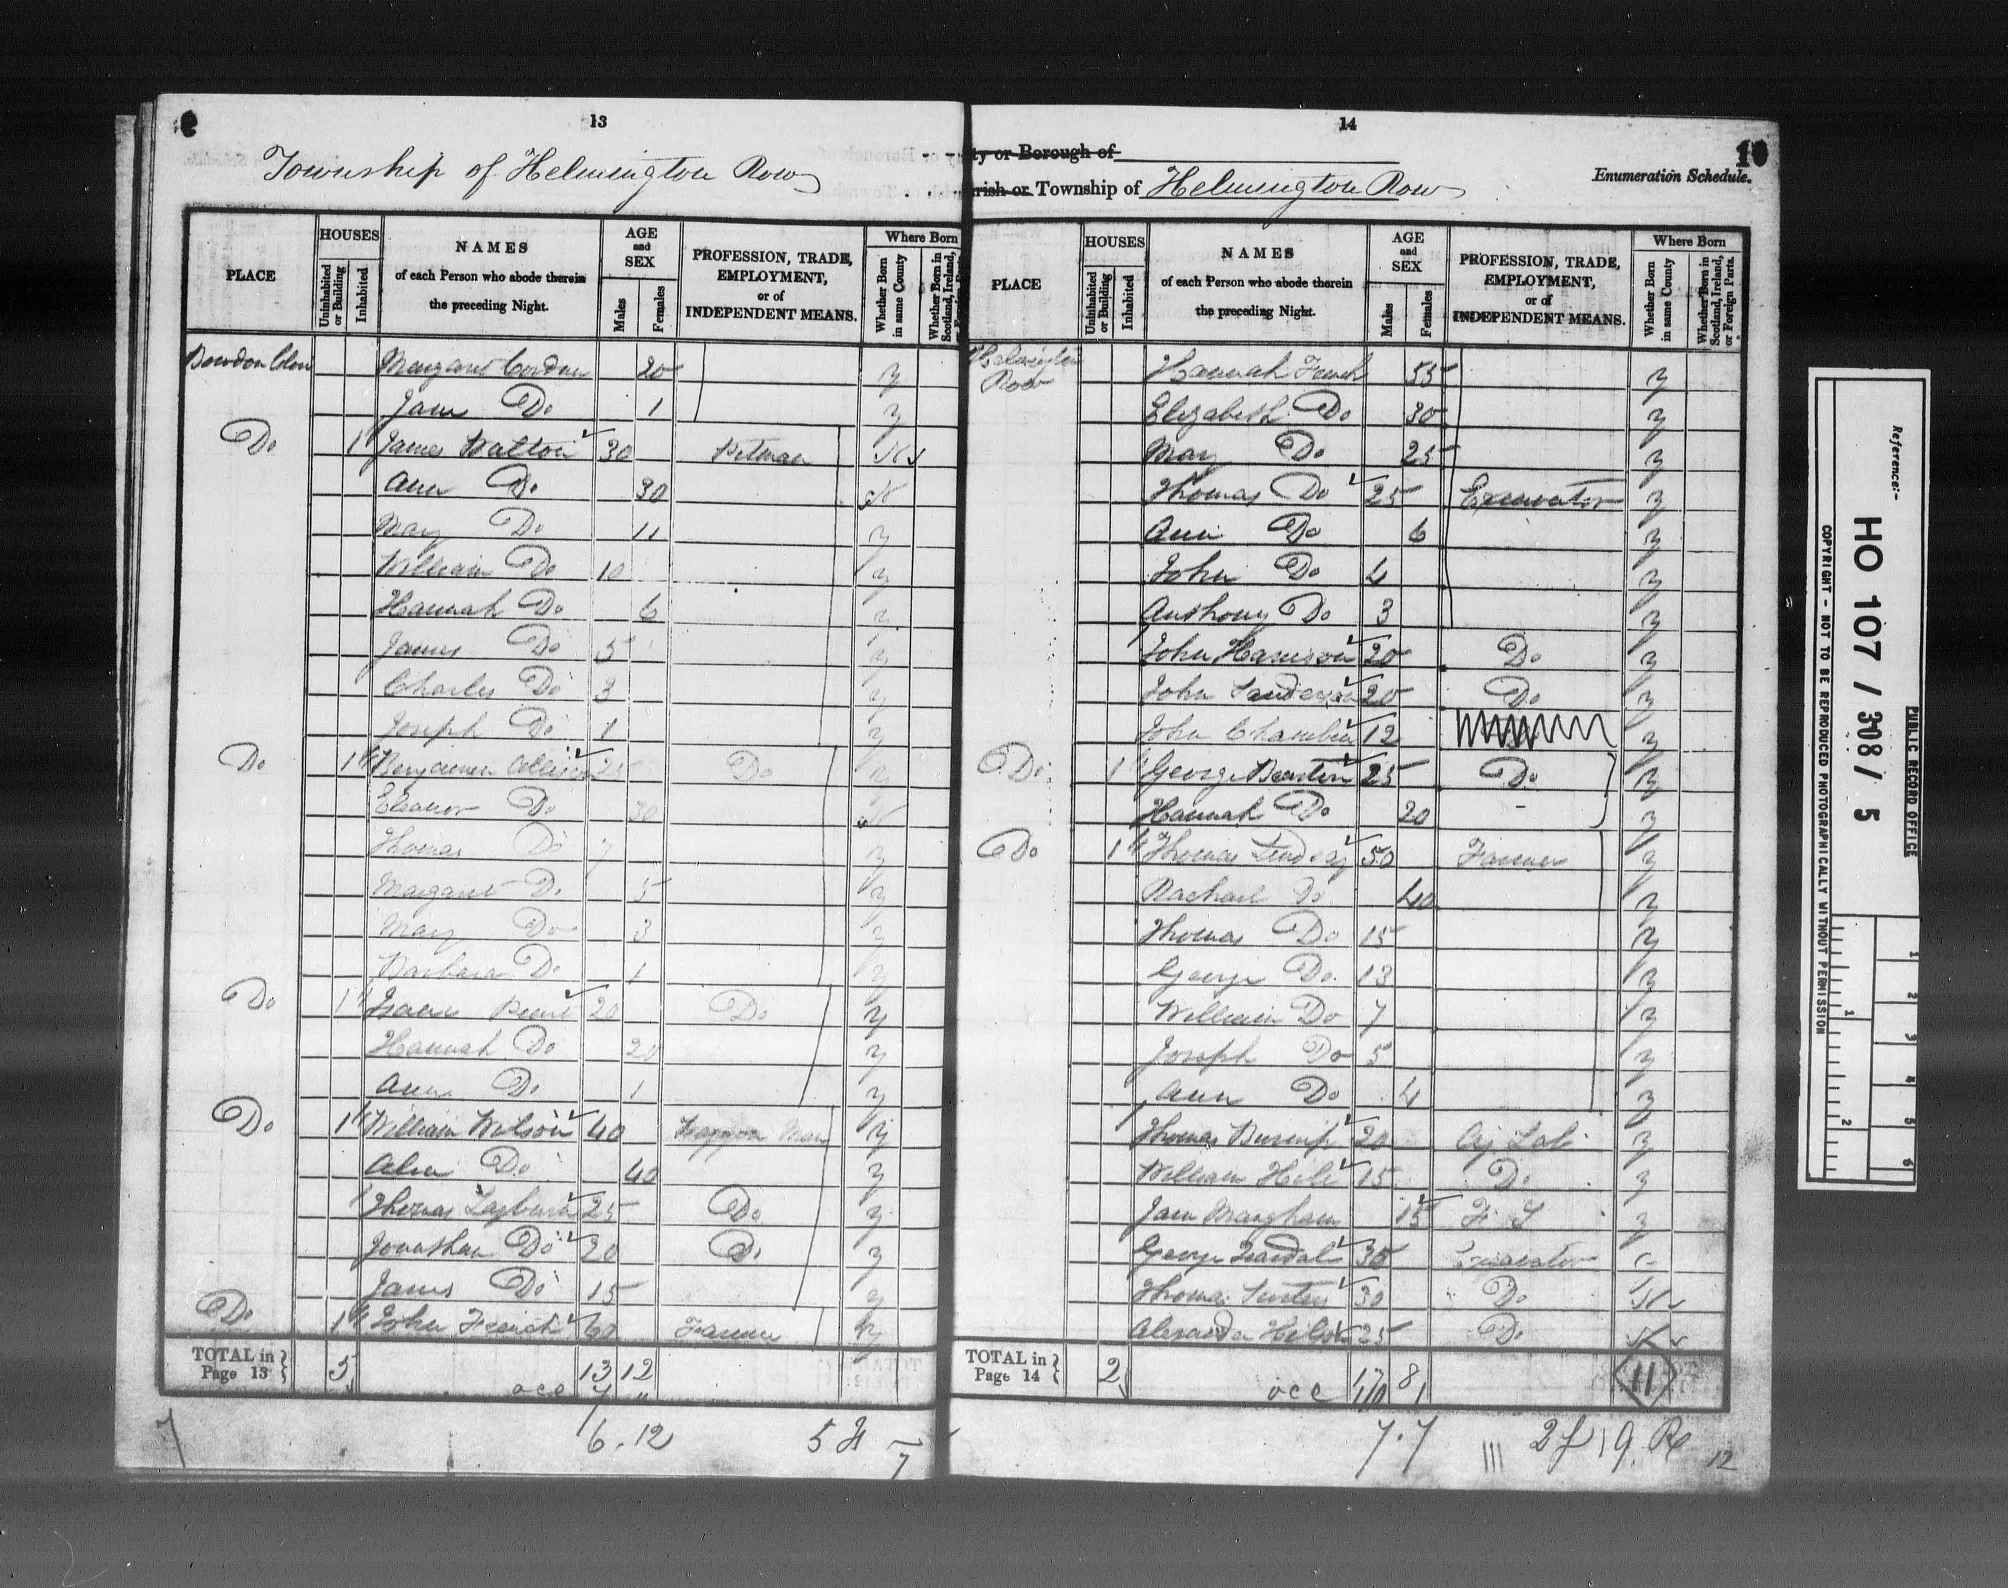 13
Township of Helmington Row
PLACE
HOUSES
Uninhabited or Building
Inhabited
NAMES
of each Person who abode therein
the preceding Night.
AGE
and
SEX
Males
Females
PROFESSION, TRADE,
EMPLOYMENT,
or of
INDEPENDENT MEANS.
Where Born
Whether Born in same County
Whether Born in Scotland, Ireland,
Margaret 20 y
Jane Do 1 y
Do 1 James Walton 30 Pitman N
Ann Do 30 N
Mary Do 11 y
William Do 10 y
Hannah Do 6 y
James Do 5 y
Charles Do 3 y
Joseph Do 1 y
Do 1 Benjamin 25 Do y
Eleanor Do 30 N
Thomas Do 7 y
Margaret Do 5 y
Mary Do 3 y
Barbara Do 1 y
Do 1 Isaac 20 Do y
Hannah Do 20 y
Ann Do 1 y
Do 1 William Wilson 40 Waggon Man y
Do 40 y
Thomas 25 Do y
Jonathan Do 20 Do y
James Do 15 y
Do 1 John French 60 Farmer y
TOTAL in
Page 13 5 13 12
occ 7 "
6.12 5 H
7
14
ty or Borough of
rish or Township of Helmington Row
10
Enumeration Schedule.
PLACE
HOUSES
Uninhabited or Building
Inhabited
NAMES
of each Person who abode therein
the preceding Night.
AGE
and
SEX
Males
Females
PROFESSION, TRADE,
EMPLOYMENT,
or of
INDEPENDENT MEANS.
Where Born
Whether Born in same County
Whether Born in Scotland, Ireland, or Foreign Parts.
Helmington Hannah French 55 y
Row
Elizabeth Do 30 y
Mary Do 25 y
Thomas Do 25 Excavator y
Ann Do 6 y
John Do 4 y
Anthony Do 3 y
John Harrison 20 Do y
John Sanderson 20 Do y
John 12 y
Do 1 George 25 Do y
Hannah Do 20 y
Do 1 Thomas 50 Farmer y
Rachael Do 40 y
Thomas Do 15 y
George Do 13 y
William Do 7 y
Joseph Do 5 y
Ann Do 4 y
Thomas 20 Ag Lab y
William 15 Do y
Jane 15 F S y
George 35 Excavator
Thomas 30 Do N
Alexander 25 Do N
TOTAL in
Page 14 2 17 8
occ 10 1
11
7.7 2 19
12
Reference:-
HO 107 / 308 / 5
PUBLIC RECORD OFFICE
COPYRIGHT - NOT TO BE REPRODUCED PHOTOGRAPHICALLY WITHOUT PERMISSION
1 2 3 4 5 6
1 2